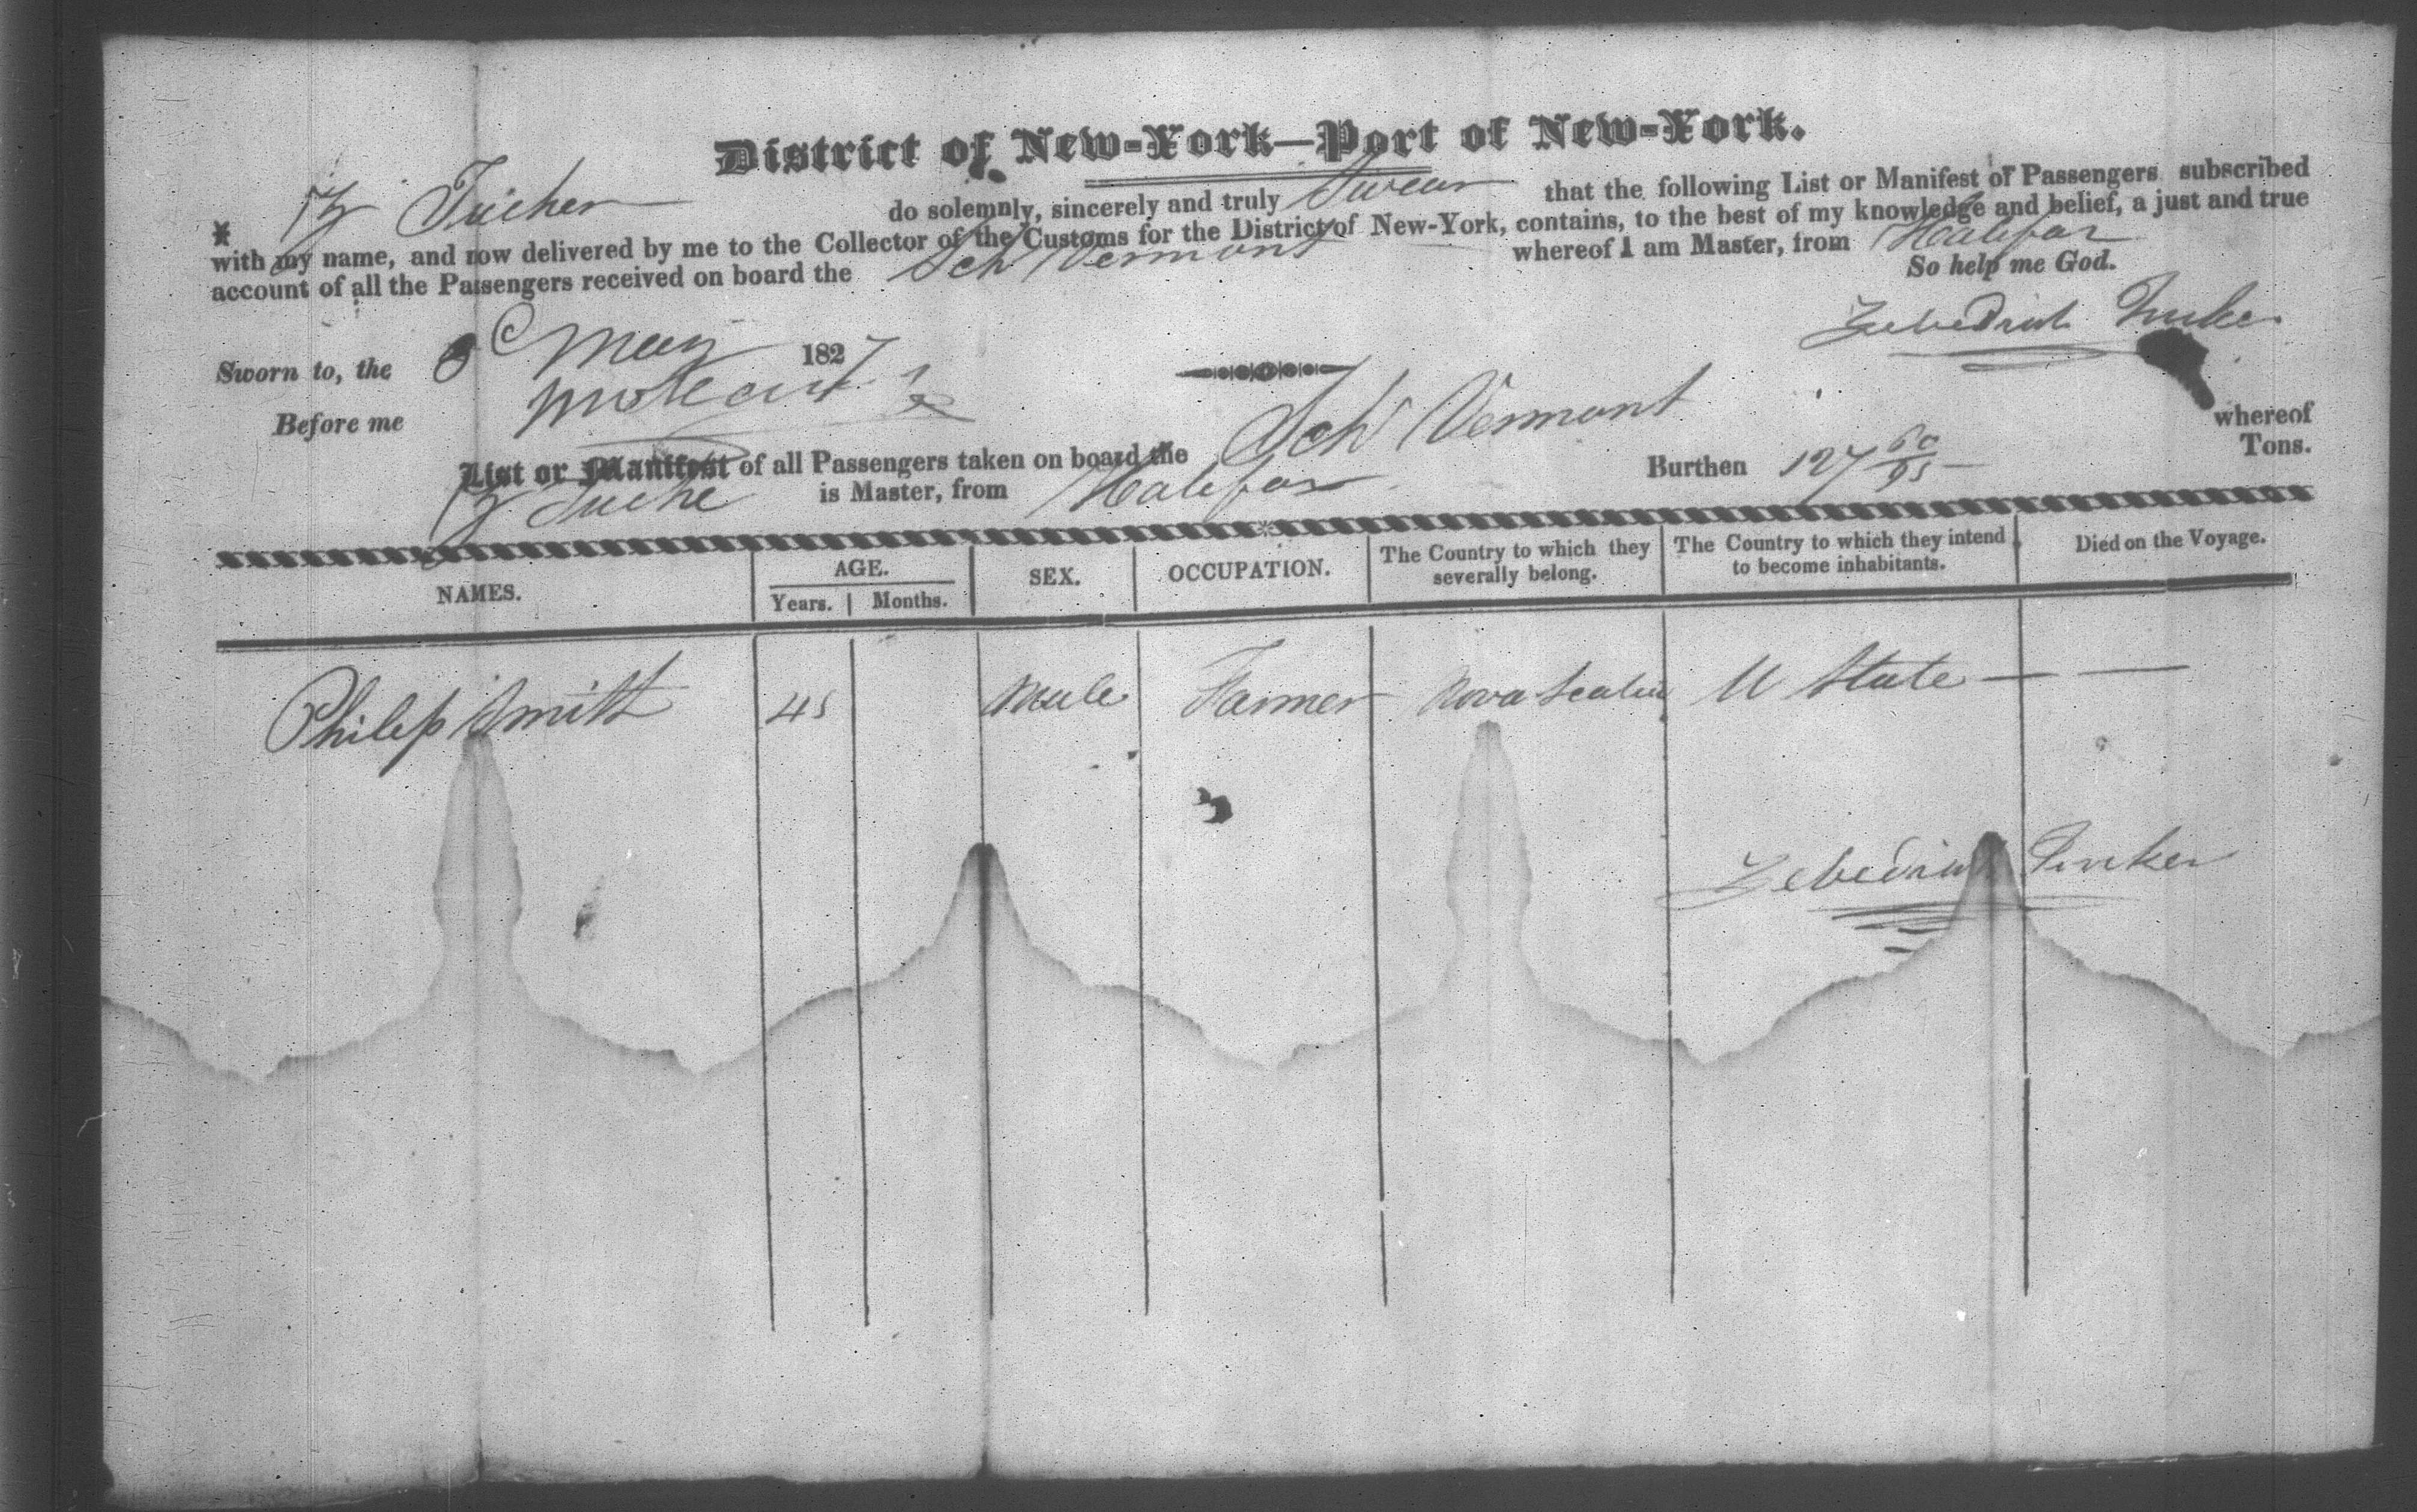 District of New-York—Port of New-York.
I, Z Tucker do solemnly, sincerely and truly Swear that the following List or Manifest of Passengers subscribed
with my name, and now delivered by me to the Collector of the Customs for the District of New-York, contains, to the best of my knowledge and belief, a just and true
account of all the Passengers received on board the Sch Vermont whereof I am Master, from Halifax
So help me God.
Sworn to, the 8 May 1827 Zebediah Tucker
Before me
List or Manifest of all Passengers taken on board the Sch Vermont whereof
Z Tucke is Master, from Halifax Burthen 127 60/95 Tons.
NAMES. AGE. Years. Months. SEX. OCCUPATION. The Country to which they severally belong. The Country to which they intend to become inhabitants. Died on the Voyage.
Philip Smith 45 Male Farmer Nova Scotia U State — —
Zebediah Tucker